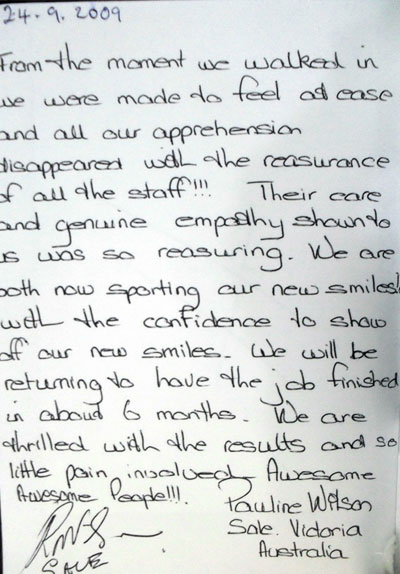 24.9.2009
From the moment we walked in
we were made to feel at ease
and all our apprehension
disappeared with the reasurance
of all the staff!!! Their care
and genuine empathy shown to
us was so reasuring. We are
both now sporting our new smiles!
with the confidence to show
off our new smiles. We will be
returning to have the job finished
in about 6 months. We are
thrilled with the results and so
little pain involved Awesome
Awesome People!!!. Pauline Wilson
Sale. Victoria
Australia